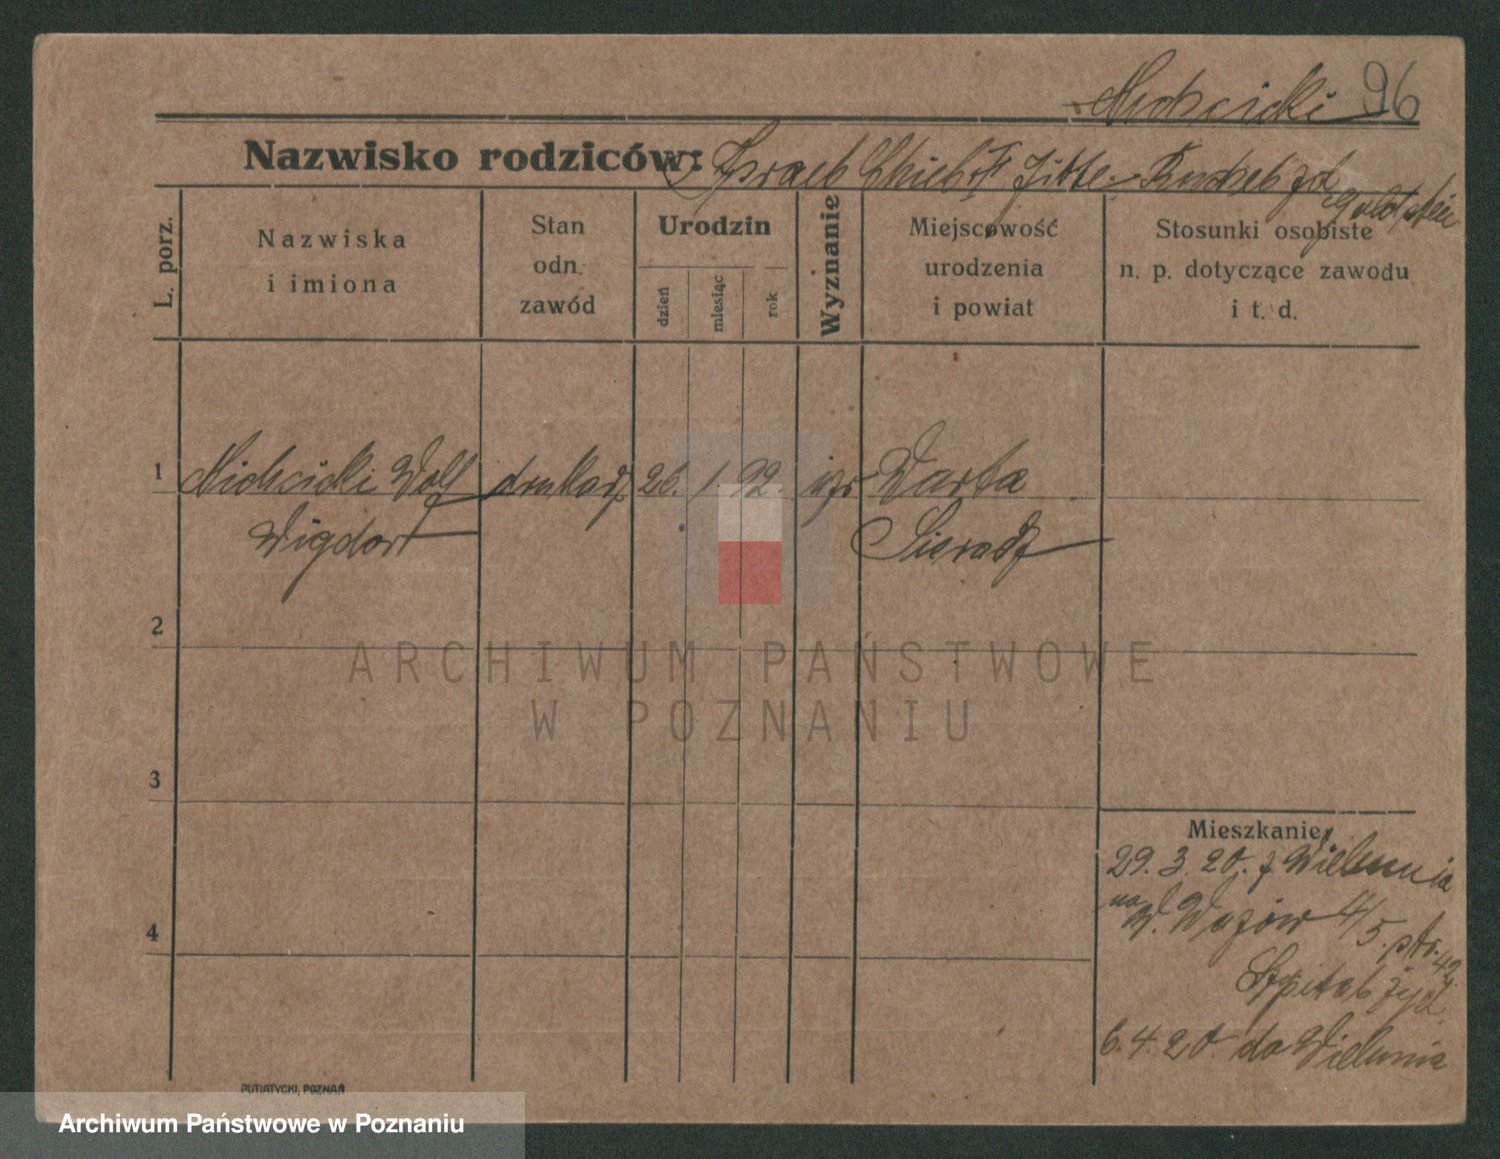 96
Nazwisko rodziców:
L. porz.
Nazwiska
i imiona
Stan
odn.
zawód
Urodzin
dzień
miesiąc
rok
Wyznanie
Miejscowość
urodzenia
i powiat
Stosunki osobiste
n. p. dotyczące zawodu
i t. d.
1
Wolf drukarz 26. 1 92. izr Warta
Wigdor Sieradz
2
3
4
Mieszkanie
29. 3. 20. z Wielunia
na W. 4/5. ptr. 42
Szpital żyd.
6. 4. 20. do Wielunia
PUTIATYCKI, POZNAŃ
ARCHIWUM PAŃSTWOWE
W POZNANIU
Archiwum Państwowe w Poznaniu